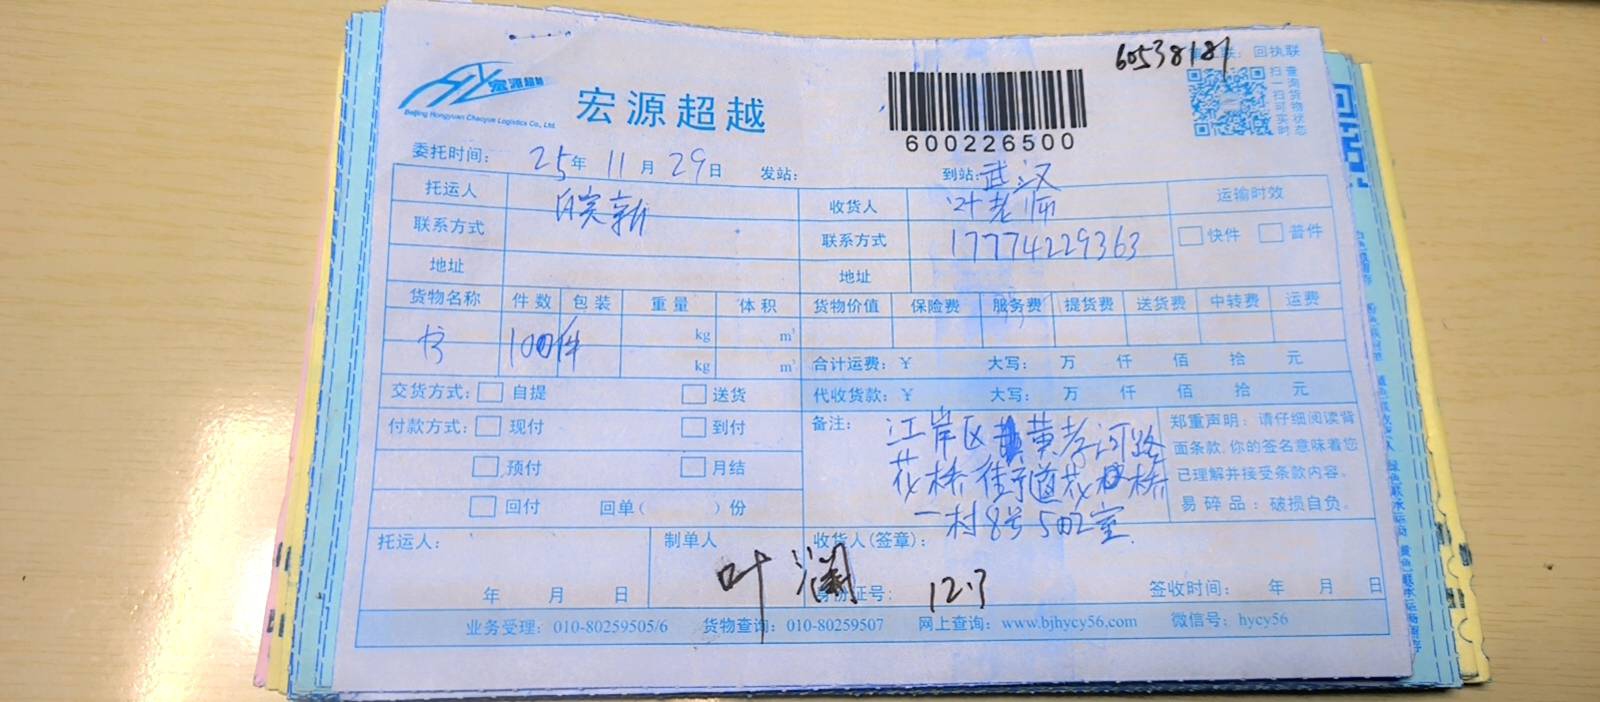 60538181
回执联
宏源超越
Beijing Hongyuan Chaoyue Logistics Co., Ltd.
宏源超越
600226500
查询货物状态
扫一扫可实时
委托时间： 25年 11月 29日 发站： 到站：武汉
托运人 皖新 收货人 叶老师 运输时效
联系方式 联系方式 17774229363 快件 普件
地址 地址
货物名称 件数 包装 重量 体积 货物价值 保险费 服务费 提货费 送货费 中转费 运费
书 100件 kg m³
kg m³ 合计运费：￥ 大写： 万 仟 佰 拾 元
交货方式： 自提 送货 代收货款：￥ 大写： 万 仟 佰 拾 元
付款方式： 现付 到付 备注： 江岸区 黄孝河路
预付 月结 花桥街道花桥
回付 回单（ ）份 一村8号502室
郑重声明：请仔细阅读背
面条款，你的签名意味着您
已理解并接受条款内容。
易碎品：破损自负。
托运人： 制单人 收货人(签章)：
叶 澜
年 月 日 身份证号： 12.3 签收时间： 年 月 日
业务受理：010-80259505/6 货物查询：010-80259507 网上查询：www.bjhycy56.com 微信号：hycy56